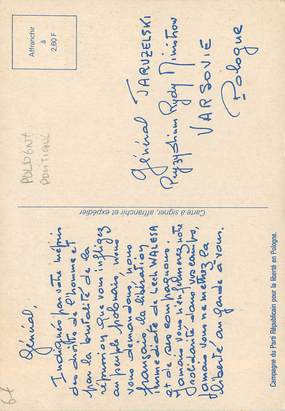 Affranchir
à
2,80 F
POLOGNE
POLITIQUE
Général JARUZELSKI
Prezydium Rydy Ministrow
VARSOVIE
Pologne
Carte à signer, affranchir et expédier
Général,
Indignés par votre mépris
des droits de l'homme et
par la brutalité de la
répression que vous infligez
au peuple polonais, nous
vous demandons, nous
français, la libération
immédiate de Lech WALESA
et de ses compagnons.
Jamais vous n'enfermerez notre
solidarité dans vos camps,
jamais vous ne mettrez la
liberté en garde à vue.
Campagne du Parti Républicain pour la liberté en Pologne.